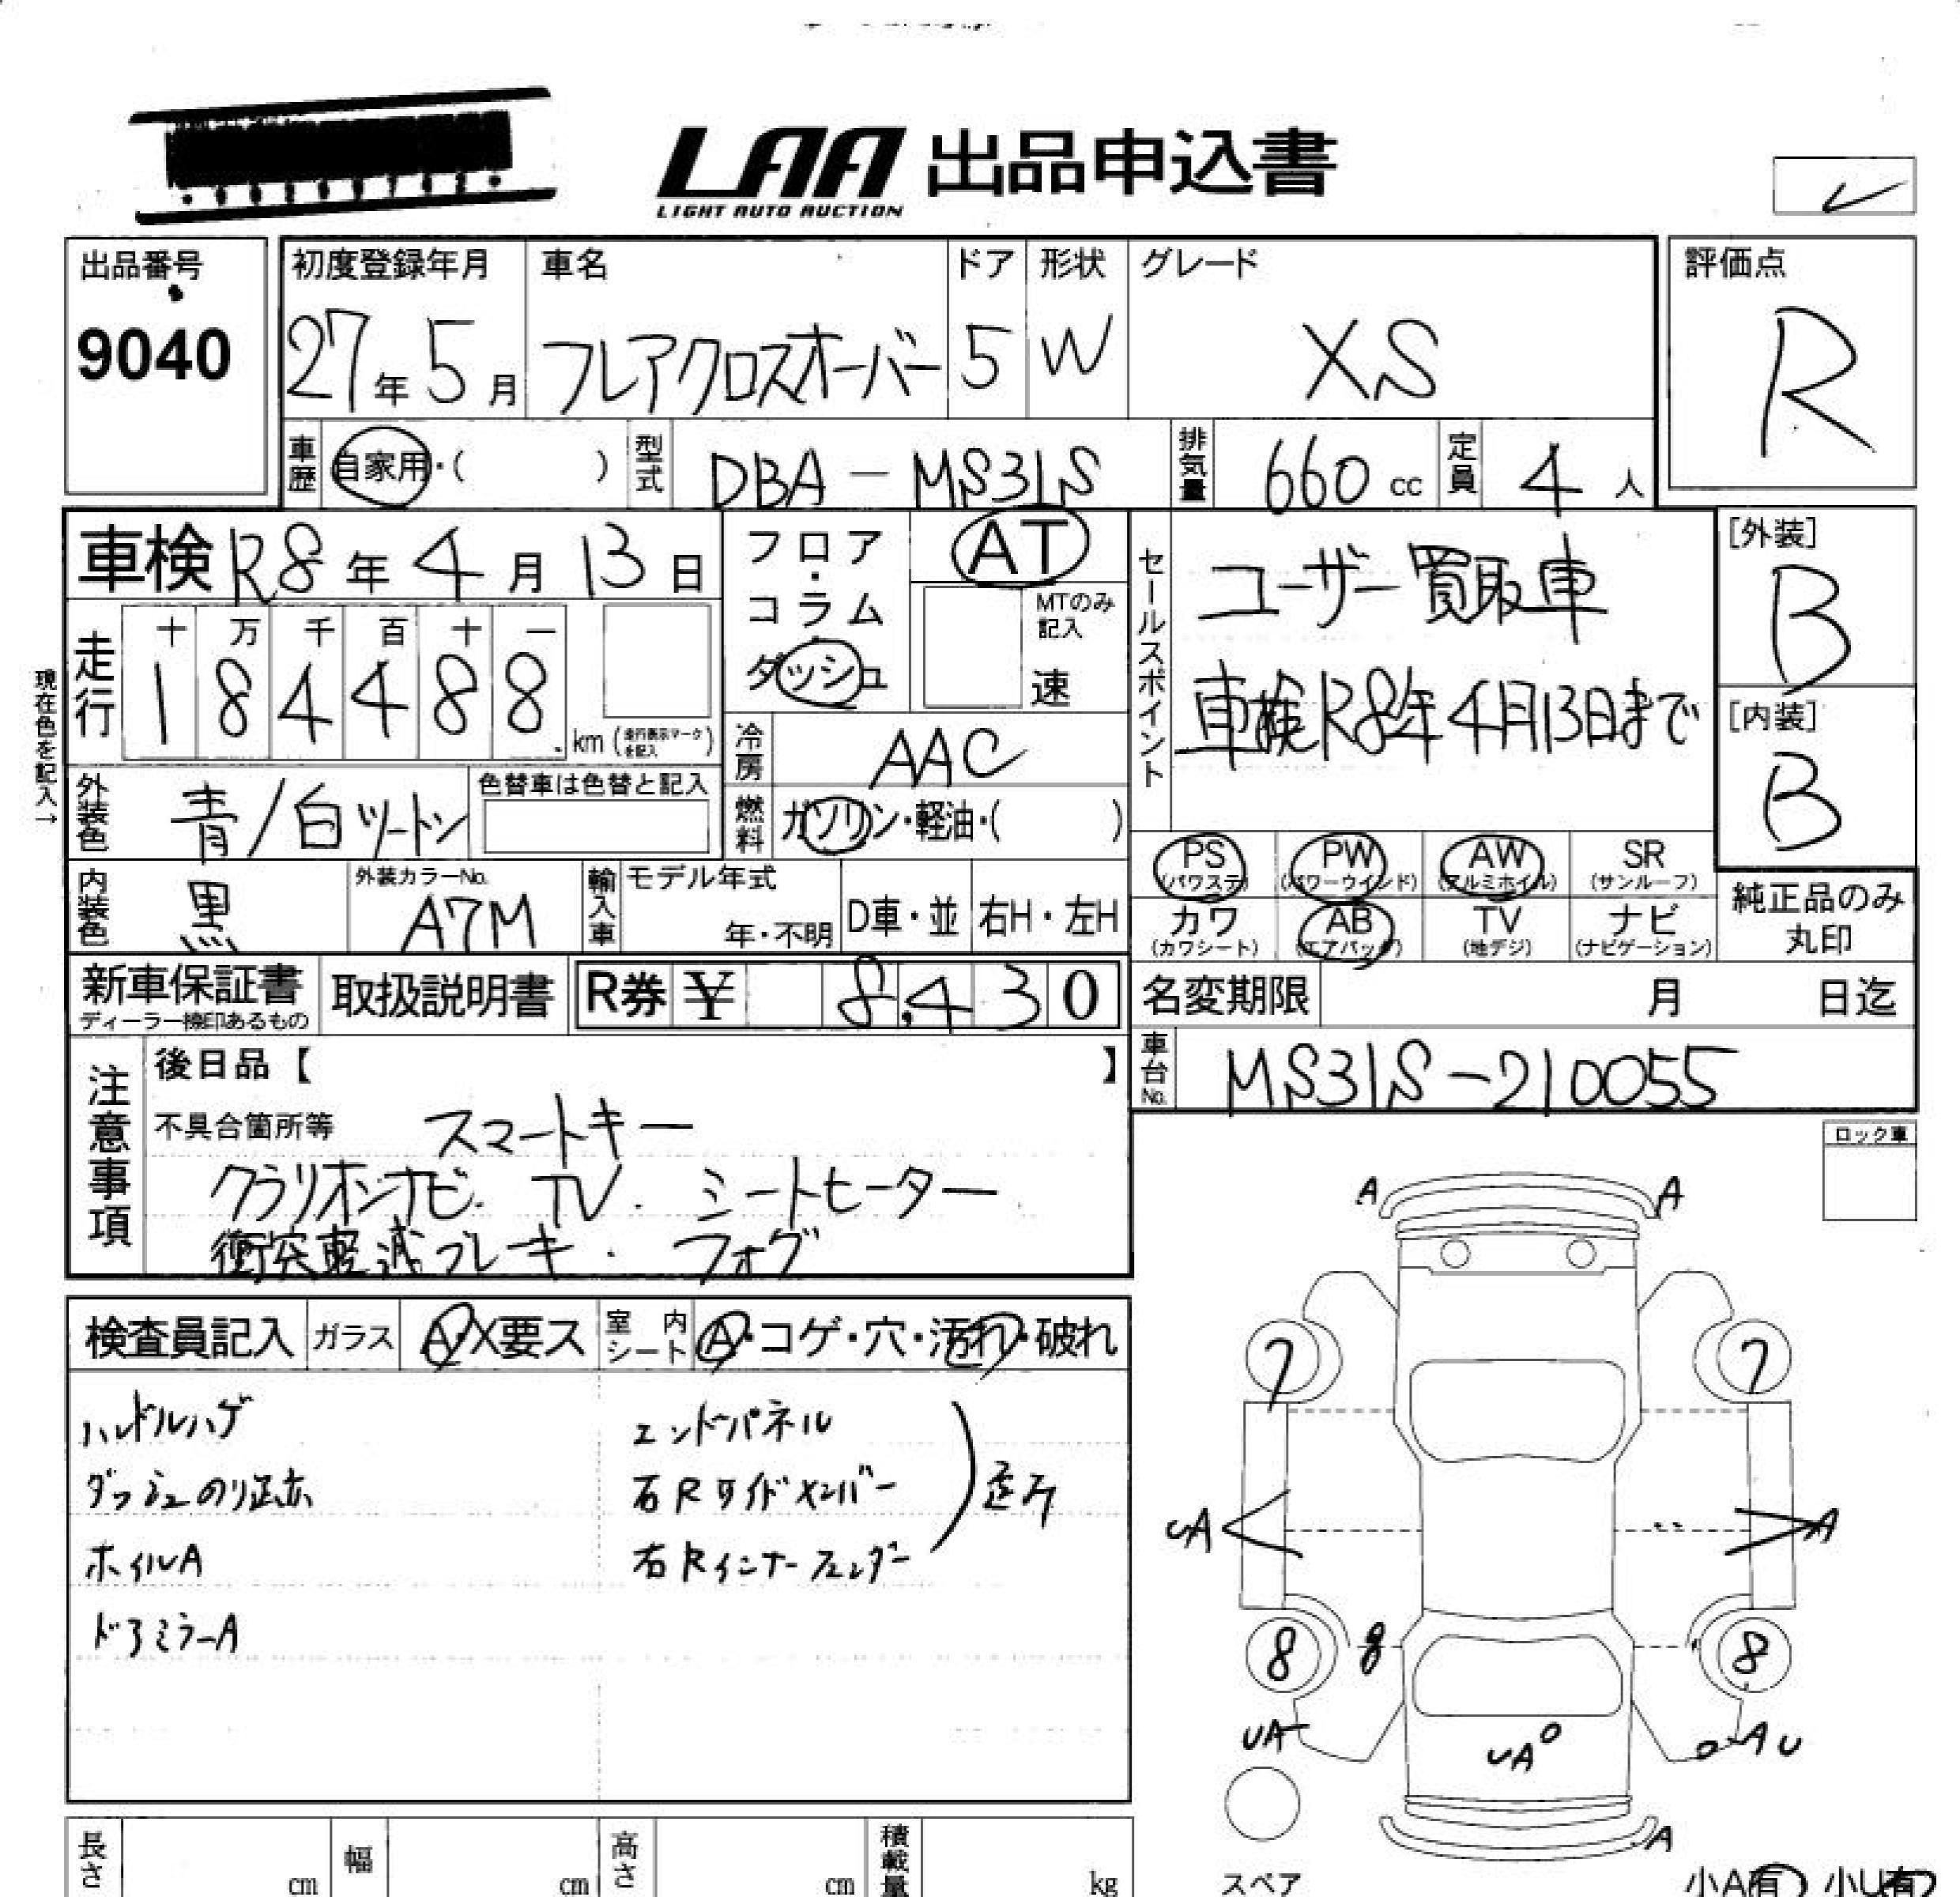 LAA 出品申込書
LIGHT AUTO AUCTION
出品番号
9040
初度登録年月
27年5月
車名
フレアクロスオーバー
ドア
5
形状
W
グレード
XS
評価点
R
車歴 自家用・( )
型式 DBA-MS31S
排気量 660 cc
定員 4 人
車検 R8年4月13日
フロア・コラム ダッシュ
AT
MTのみ記入
速
セールスポイント
ユーザー買取車
車検R8年4月13日まで
[外装]
B
[内装]
B
現在色を記入→
走行
十 万 千 百 十 一
1 8 4 4 8 8
km (走行表示マークを記入)
冷房 AAC
燃料 ガソリン・軽油・( )
外装色 青/白ツートン
色替車は色替と記入
内装色 黒
外装カラーNo.
A7M
輸入車
モデル年式
年・不明
D車・並
右H・左H
PS (パワステ)
PW (パワーウインド)
AW (アルミホイル)
SR (サンルーフ)
カワ (カワシート)
AB (エアバッグ)
TV (地デジ)
ナビ (ナビゲーション)
純正品のみ
丸印
新車保証書
ディーラー捺印あるもの
取扱説明書
R券 ¥ 8,430
名変期限 月 日迄
車台No. MS31S-210055
注意事項
後日品【 】
不具合箇所等 スマートキー
クラリオンナビ. TV. シートヒーター
衝突軽減ブレーキ. フォグ
ロック車
検査員記入
ガラス A・X要ス
室内シート A・コゲ・穴・汚れ・破れ
ハンドルハゲ
ダッシュのり跡
ホイルA
ドアミラーA
エンドパネル
右Rサイドメンバー
右Rインナーフェンダー
A A
7 7
UA A
8 8 8
UA UA AU
A
スペア
小A有 小U有
長さ cm
幅 cm
高さ cm
積載量 kg